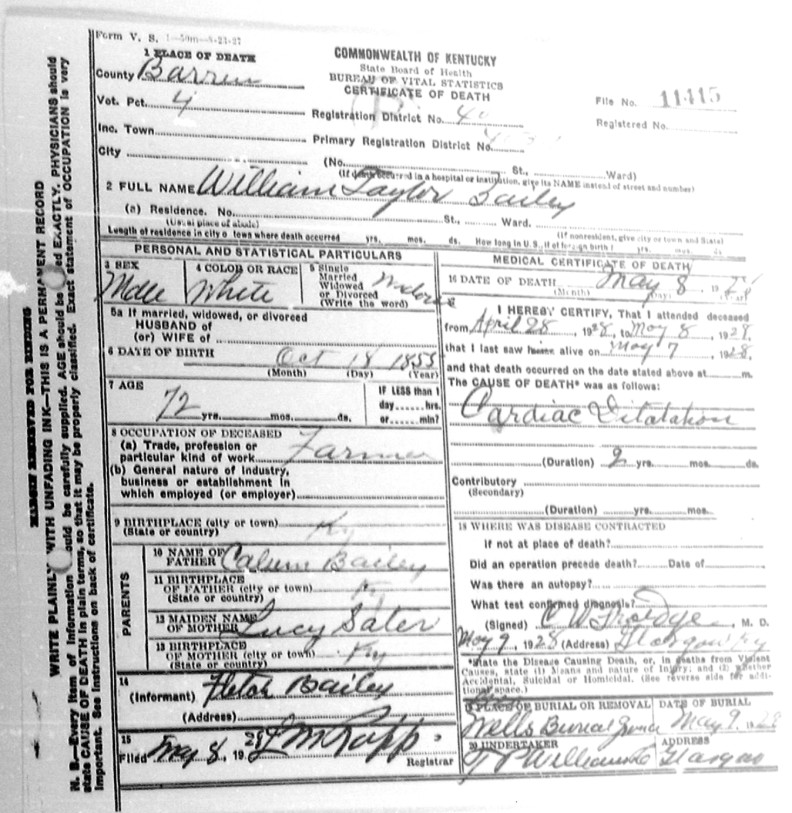 Form V. S. 1-50m-8-23-27
1 PLACE OF DEATH
County Barren
Vot. Pct. 4
Inc. Town
City
COMMONWEALTH OF KENTUCKY
State Board of Health
BUREAU OF VITAL STATISTICS
CERTIFICATE OF DEATH
File No. 11415
Registered No.
Registration District No. 40
Primary Registration District No.
(No. St., Ward)
(If death occurred in a hospital or institution, give its NAME instead of street and number)
2 FULL NAME William Taylor Bailey
(a) Residence. No. St., Ward.
(Usual place of abode) (If nonresident, give city or town and State)
Length of residence in city or town where death occurred yrs. mos. ds. How long in U.S., if of foreign birth? yrs. mos. ds.
PERSONAL AND STATISTICAL PARTICULARS
3 SEX Male
4 COLOR OR RACE White
5 Single Married Widowed or Divorced (Write the word)
5a If married, widowed, or divorced
HUSBAND of
(or) WIFE of
6 DATE OF BIRTH Oct 18 1855
(Month) (Day) (Year)
7 AGE 72 yrs. mos. ds.
IF LESS than 1
day hrs.
or min?
8 OCCUPATION OF DECEASED
(a) Trade, profession or
particular kind of work Farmer
(b) General nature of industry,
business or establishment in
which employed (or employer)
9 BIRTHPLACE (city or town) Ky
(State or country)
PARENTS
10 NAME OF
FATHER Bailey
11 BIRTHPLACE
OF FATHER (city or town) Ky
(State or country)
12 MAIDEN NAME
OF MOTHER Lucy Sater
13 BIRTHPLACE
OF MOTHER (city or town) Ky
(State or country)
14
(Informant) Fletch Bailey
(Address)
15
Filed May 8, 1928
Registrar
MEDICAL CERTIFICATE OF DEATH
16 DATE OF DEATH May 8, 1928
(Month) (Day) (Year)
I HEREBY CERTIFY, That I attended deceased
from April 28, 1928, to May 8, 1928,
that I last saw him alive on May 7, 1928,
and that death occurred on the date stated above at m.
The CAUSE OF DEATH* was as follows:
Cardiac Dilatation
(Duration) 2 yrs. mos. ds.
Contributory
(Secondary)
(Duration) yrs. mos. ds.
18 WHERE WAS DISEASE CONTRACTED
if not at place of death?
Did an operation precede death? Date of
Was there an autopsy?
What test confirmed diagnosis?
(Signed) C W M. D.
May 9, 1928 (Address) Glasgow Ky
*State the Disease Causing Death, or, in deaths from Violent
Causes, state (1) Means and nature of Injury; and (2) whether
Accidental, Suicidal or Homicidal. (See reverse side for addi-
tional space.)
19 PLACE OF BURIAL OR REMOVAL Wells Burial
DATE OF BURIAL May 9, 1928
20 UNDERTAKER
ADDRESS Glasgow
MARGIN RESERVED FOR BINDING
WRITE PLAINLY WITH UNFADING INK—THIS IS A PERMANENT RECORD
N. B.—Every item of information should be carefully supplied. AGE should be stated EXACTLY. PHYSICIANS should
state CAUSE OF DEATH in plain terms, so that it may be properly classified. Exact statement of OCCUPATION is very
important. See instructions on back of certificate.